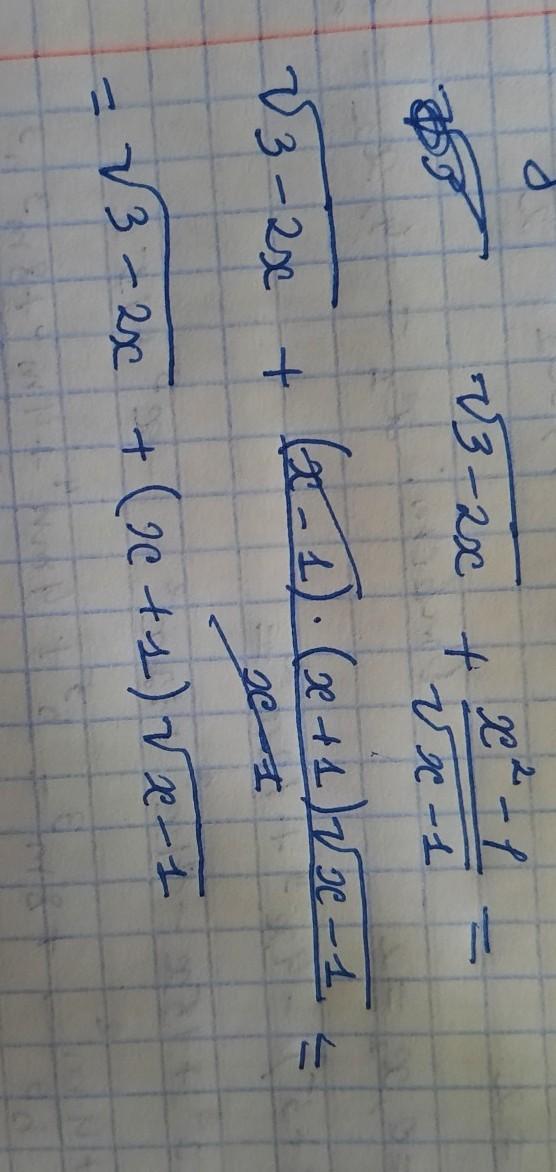 √(3-2x) + (x²-1)/√(x-1) =
√(3-2x) + ((x-1)·(x+1)√(x-1))/(x-1) =
= √(3-2x) + (x+1)√(x-1)